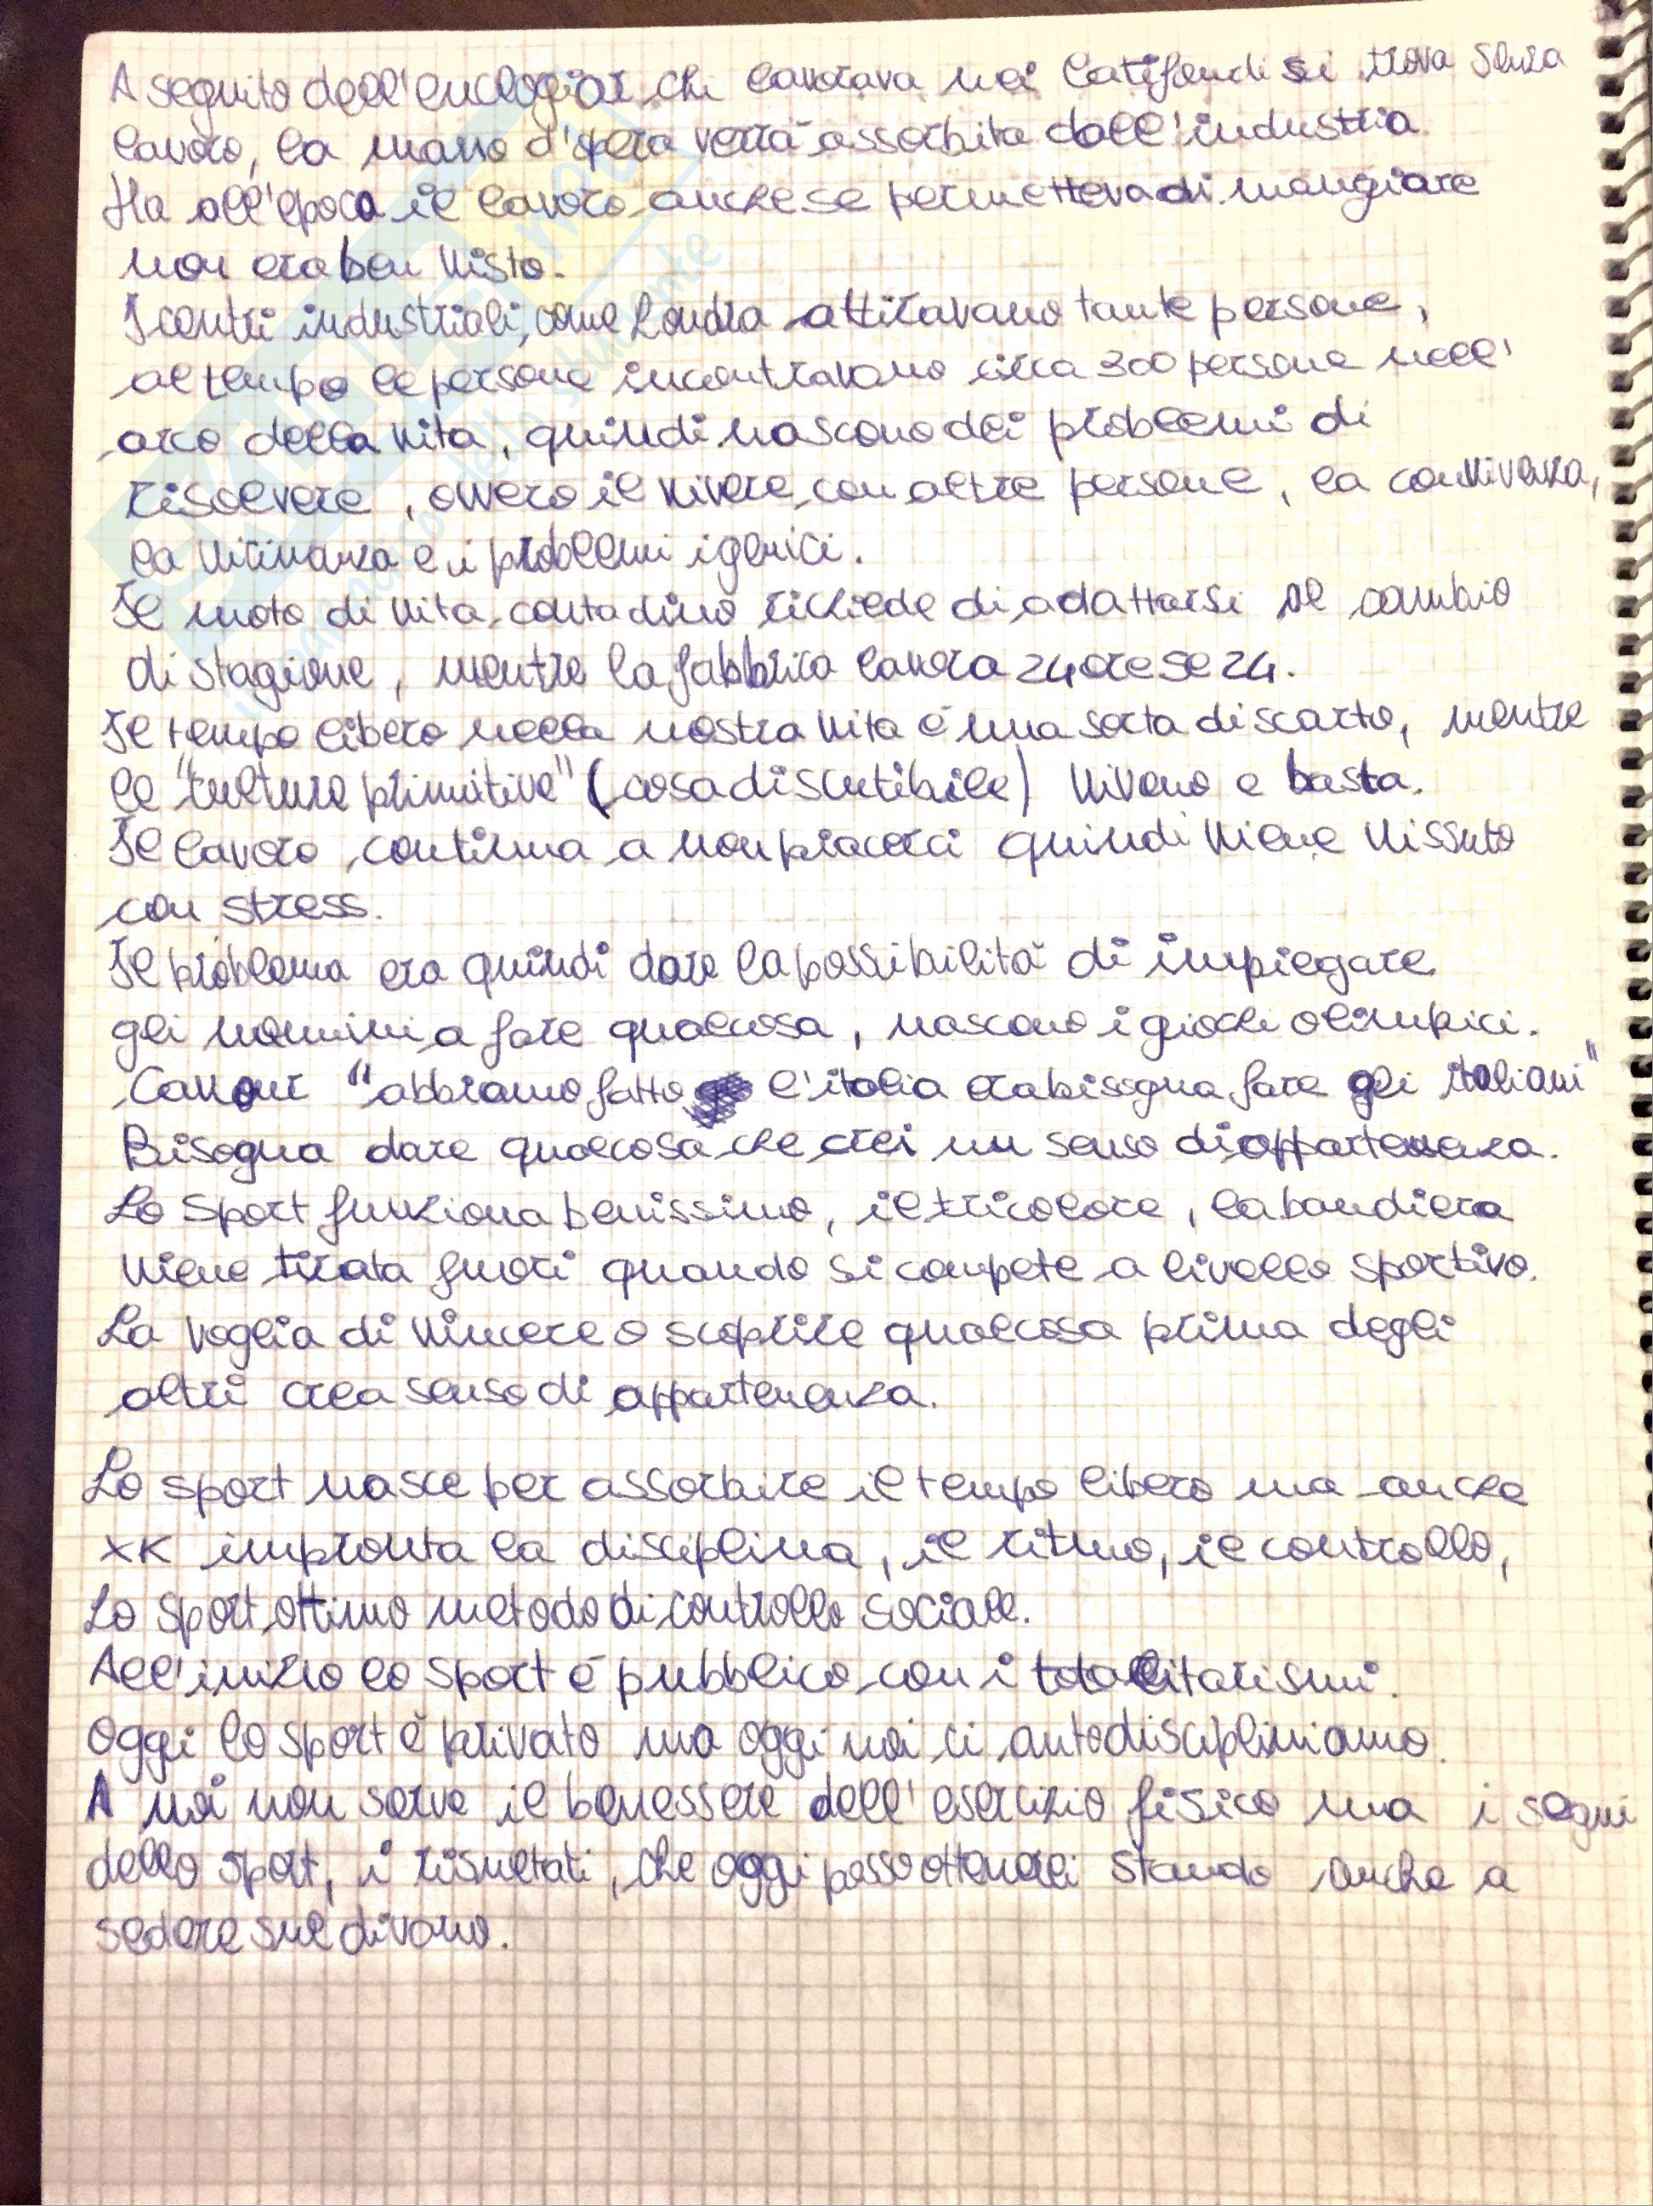 A seguito dell'enclogior, chi lavorava nei latifondi si trova senza
lavoro, la mano d'opera verrà assorbita dall'industria.
Ma all'epoca il lavoro anche se permetteva di mangiare
non era ben visto.
I centri industriali, come Londra attiravano tante persone,
al tempo le persone incontravano circa 300 persone nell'
arco della vita, quindi nascono dei problemi di
risolvere, ovvero il vivere con altre persone, la convivenza,
la vicinanza e i problemi igenici.
Il moto di vita contadino richiede di adattarsi al cambio
di stagione, mentre la fabbrica lavora 24 ore se 24.
Il tempo libero nella nostra vita è una sorta di scarto, mentre
le "culture primitive" (cosa discutibile) vivono e basta.
Il lavoro continua a non piacerci quindi viene vissuto
con stress.
Il problema era quindi dare la possibilità di impiegare
gli uomini a fare qualcosa, nascono i giochi olimpici.
Cavour "abbiamo fatto l'italia ora bisogna fare gli italiani"
Bisogna dare qualcosa che crei un senso di appartenenza.
Lo sport funziona benissimo, il tricolore, la bandiera
viene tirata fuori quando si compete a livello sportivo.
La voglia di vincere o scoprire qualcosa prima degli
altri crea senso di appartenenza.
Lo sport nasce per assorbire il tempo libero ma anche
xK impronta la disciplina, il ritmo, il controllo,
Lo sport ottimo metodo di controllo sociale.
All'inizio lo sport è pubblico con i totalitarismi.
Oggi lo sport è privato ma oggi noi ci autodiscipliniamo.
A noi non serve il benessere dell'esercizio fisico ma i segni
dello sport, i risultati, che oggi posso ottenerli stando anche a
sedere sul divano.